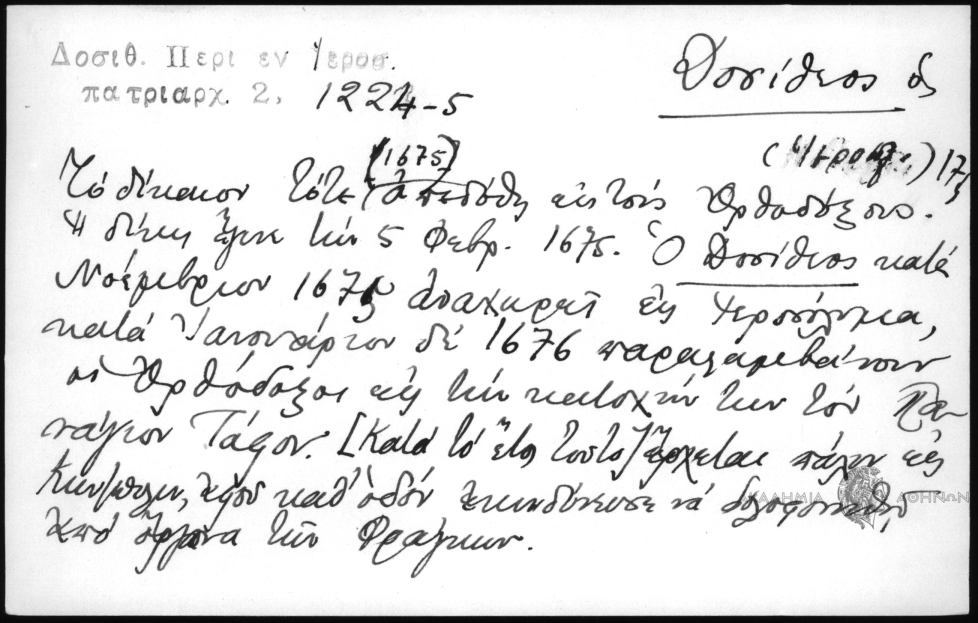 Δοσιθ. Περι εν Ιεροσ.
πατριαρχ. 2, 1224-5
Δοσίθεος ὁ
(Ἱεροσ.) 17
(1675)
Τό δίκαιον τότε ἀπεδόθη εἰς τούς Ὀρθοδόξους.
Ἡ δίκη ἔγινε τήν 5 Φεβρ. 1675. Ὁ Δοσίθεος κατά
Νοέμβριον 1675 ἀναχωρεῖ εἰς Ἱεροσόλυμα,
κατά Ἰανουάριον δέ 1676 παραλαμβάνουν
οἱ Ὀρθόδοξοι εἰς τήν κατοχήν των τόν Πα-
νάγιον Τάφον. [Κατά τό ἔτος τοῦτο] ἔρχεται πάλιν εἰς
Κων/πολιν, καθ' ὁδόν ἐκινδύνευσε νά δολοφονηθῇ
ἀπό ὄργανα τῶν Φράγκων.
ΑΚΑΔΗΜΙΑ ΑΘΗΝΩΝ